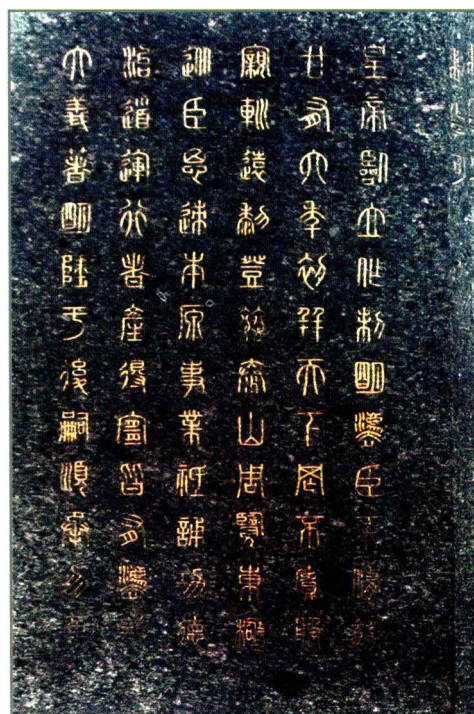 皇帝臨立作制明灋臣下脩飭
廿有六年初并天下罔不賓服
親軔遠黎登茲泰山周覽東極
從臣思迹本原事業祗誦功德
治道運行者產得宜皆有灋式
大義箸明陲于後嗣順承勿革